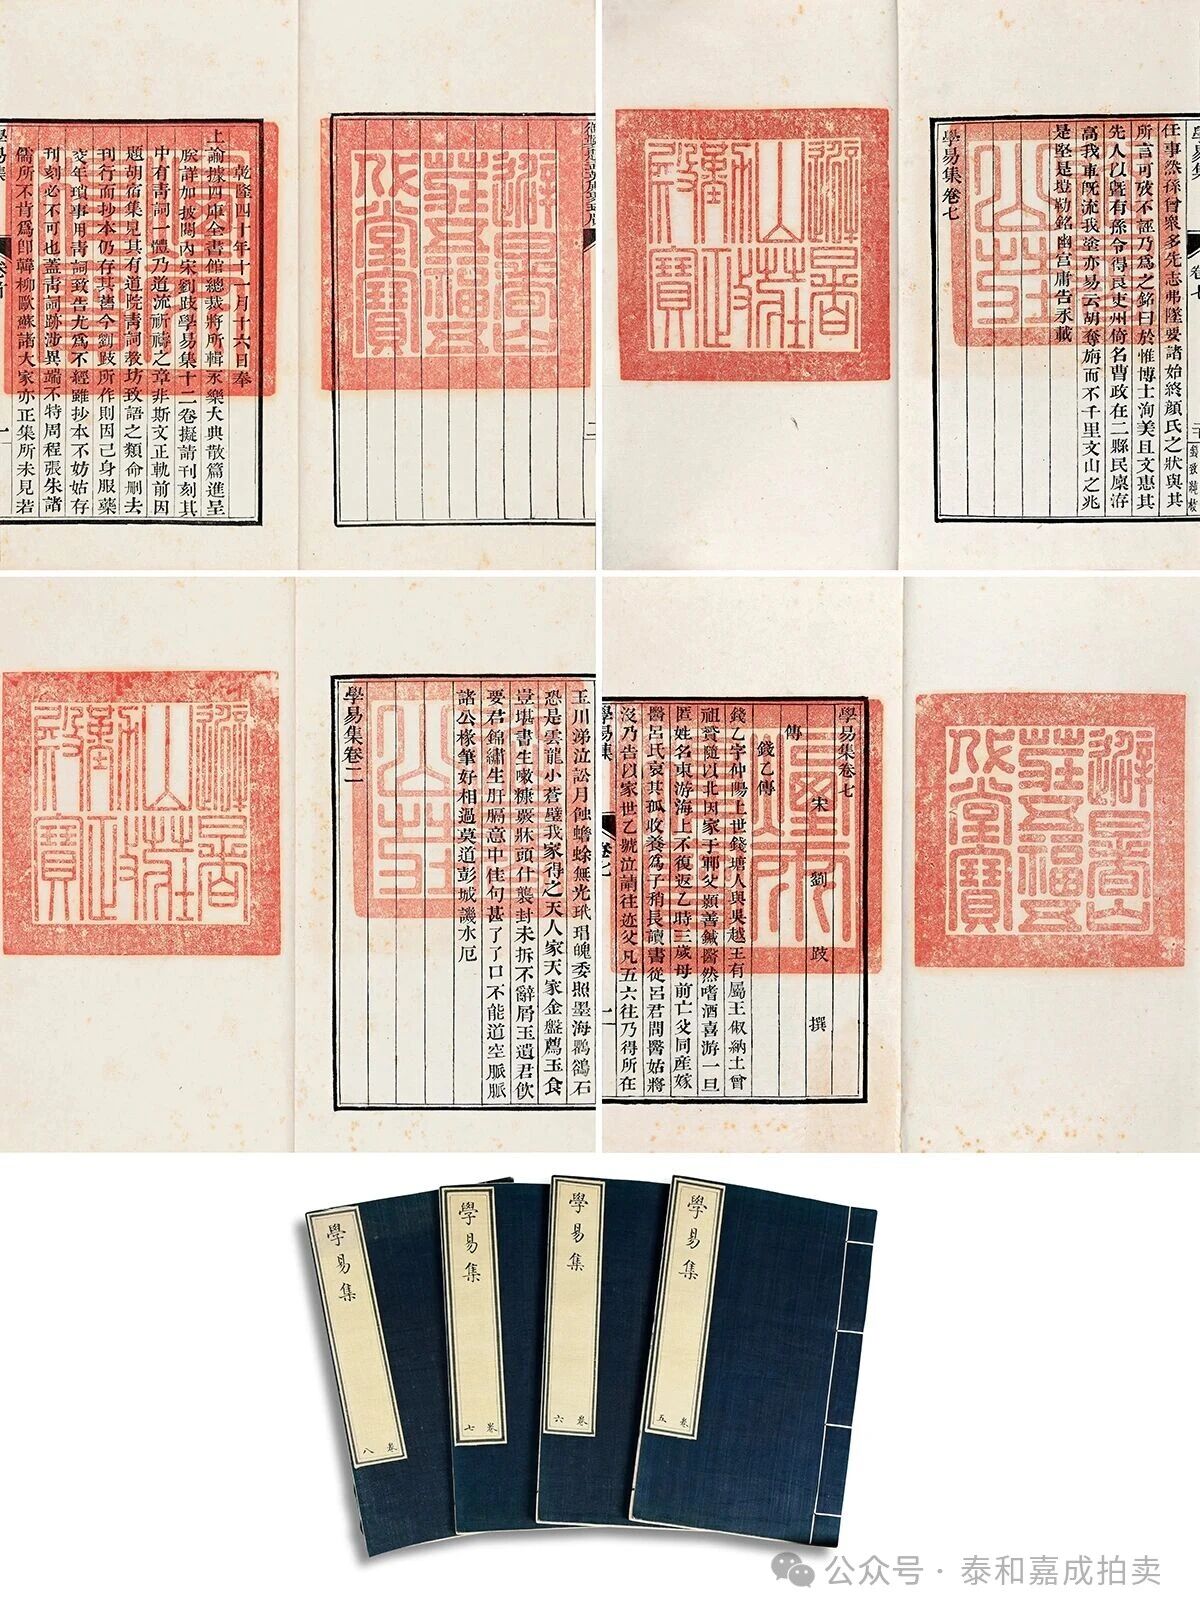 乾隆四十年十一月十六日奉
上諭據四庫全書館總裁將所輯永樂大典散篇進呈
朕詳加披閱內宋劉跂學易集十二卷擬請刊刻其
中有青詞一體乃道流祈禱之章非斯文正軌前因
題胡宿集見其有道院青詞教坊致語之類命刪去
刊行而抄本仍存其舊今劉跂所作則因己身服藥
交年瑣事用青詞致告尤為不經雖抄本不妨姑存
刊刻必不可也蓋青詞跡涉異端不特周程張朱諸
儒所不肯為卽韓柳歐蘇諸大家亦正集所未見若
學易集
卷首
一
避暑山
莊五福五
代堂寶
二
任事然孫曾衆多先志弗墜要諸始終顏氏之狀與其
所言可攷不誣乃為之銘曰於惟博士洵美且文惠其
先人以曁有孫令得良吏州倚名曹政在二縣民廩洊
高我車旣流我塗亦易云胡奪旃而不千里文山之兆
是堅是塏勒銘幽宮庸告永載
學易集卷七
學易集
卷七
避暑
山莊
勤政
殿寶
玉川涕泣訟月蝕蟾蜍無光玳瑁魄委照墨海鸜鵒石
恐是雲龍小蒼璧我家得之天人家天家金盤薦玉食
豈堪書生嗽糠覈牀頭什襲封未拆不辭屑玉遺君飮
要君錦繡生肝膈意中佳句甚了了口不能道空脈脈
諸公椽筆好相過莫道彭城譏水厄
學易集卷二
避暑
山莊
勤政
殿寶
學易集卷七
宋 劉跂 撰
傳
錢乙傳
錢乙字仲陽上世錢塘人與吳越王有屬王俶納土曾
祖贇隨以北因家于鄆父顥善鍼醫然嗜酒喜游一旦
匿姓名東游海上不復返乙時三歲母前亡父同產嫁
醫呂氏哀其孤收養為子稍長讀書從呂君問醫姑將
沒乃告以家世乙號泣請往迹父凡五六往乃得所在
學易集
卷七
一
避暑山
莊五福五
代堂寶
學易集
卷八
學易集
卷七
學易集
卷六
學易集
卷五
公众号·泰和嘉成拍卖